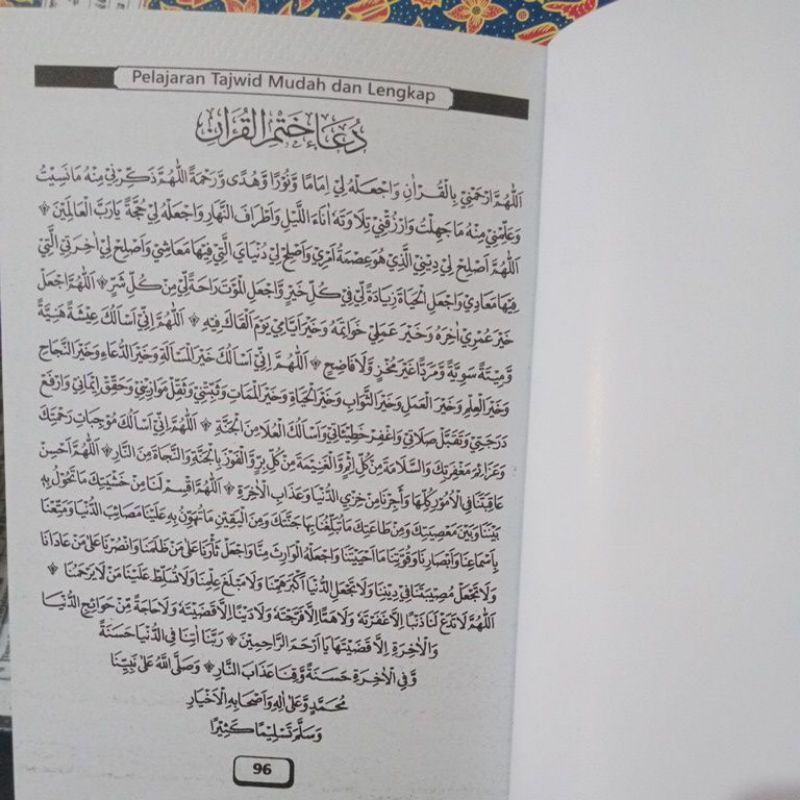 Pelajaran Tajwid Mudah dan Lengkap
دُعَاءُ خَتْمِ الْقُرْآنِ
اَللّٰهُمَّ ارْحَمْنِيْ بِالْقُرْاٰنِ وَاجْعَلْهُ لِيْ اِمَامًا وَّنُوْرًا وَّهُدًى وَّرَحْمَةً اَللّٰهُمَّ ذَكِّرْنِيْ مِنْهُ مَا نَسِيْتُ
وَعَلِّمْنِيْ مِنْهُ مَا جَهِلْتُ وَارْزُقْنِيْ تِلَاوَتَهٗ اٰنَاءَ اللَّيْلِ وَاَطْرَافَ النَّهَارِ وَاجْعَلْهُ لِيْ حُجَّةً يَارَبَّ الْعَالَمِيْنَ
اَللّٰهُمَّ اَصْلِحْ لِيْ دِيْنِيْ الَّذِيْ هُوَ عِصْمَةُ اَمْرِيْ وَاَصْلِحْ لِيْ دُنْيَايَ الَّتِيْ فِيْهَا مَعَاشِيْ وَاَصْلِحْ لِيْ اٰخِرَتِيْ الَّتِيْ
فِيْهَا مَعَادِيْ وَاجْعَلِ الْحَيَاةَ زِيَادَةً لِّيْ فِيْ كُلِّ خَيْرٍ وَّاجْعَلِ الْمَوْتَ رَاحَةً لِّيْ مِنْ كُلِّ شَرٍّ اَللّٰهُمَّ اجْعَلْ
خَيْرَ عُمْرِيْ اٰخِرَهُ وَخَيْرَ عَمَلِيْ خَوَاتِمَهُ وَخَيْرَ اَيَّامِيْ يَوْمَ اَلْقَاكَ فِيْهِ اَللّٰهُمَّ اِنِّيْ اَسْأَلُكَ عِيْشَةً هَنِيَّةً
وَّمِيْتَةً سَوِيَّةً وَّمَرَدًّا غَيْرَ مُخْزٍ وَّلَا فَاضِحٍ اَللّٰهُمَّ اِنِّيْ اَسْأَلُكَ خَيْرَ الْمَسْأَلَةِ وَخَيْرَ الدُّعَاءِ وَخَيْرَ النَّجَاحِ
وَخَيْرَ الْعِلْمِ وَخَيْرَ الْعَمَلِ وَخَيْرَ الثَّوَابِ وَخَيْرَ الْحَيَاةِ وَخَيْرَ الْمَمَاتِ وَثَبِّتْنِيْ وَثَقِّلْ مَوَازِيْنِيْ وَحَقِّقْ اِيْمَانِيْ وَارْفَعْ
دَرَجَتِيْ وَتَقَبَّلْ صَلَاتِيْ وَاغْفِرْ خَطِيْئَاتِيْ وَاَسْأَلُكَ الْعُلَا مِنَ الْجَنَّةِ اَللّٰهُمَّ اِنِّيْ اَسْأَلُكَ مُوْجِبَاتِ رَحْمَتِكَ
وَعَزَائِمَ مَغْفِرَتِكَ وَالسَّلَامَةَ مِنْ كُلِّ اِثْمٍ وَّالْغَنِيْمَةَ مِنْ كُلِّ بِرٍّ وَّالْفَوْزَ بِالْجَنَّةِ وَالنَّجَاةَ مِنَ النَّارِ اَللّٰهُمَّ اَحْسِنْ
عَاقِبَتَنَا فِي الْاُمُوْرِ كُلِّهَا وَاَجِرْنَا مِنْ خِزْيِ الدُّنْيَا وَعَذَابِ الْاٰخِرَةِ اَللّٰهُمَّ اقْسِمْ لَنَا مِنْ خَشْيَتِكَ مَا تَحُوْلُ بِهِ
بَيْنَنَا وَبَيْنَ مَعْصِيَتِكَ وَمِنْ طَاعَتِكَ مَا تُبَلِّغُنَا بِهَا جَنَّتَكَ وَمِنَ الْيَقِيْنِ مَا تُهَوِّنُ بِهِ عَلَيْنَا مَصَائِبَ الدُّنْيَا وَمَتِّعْنَا
بِاَسْمَاعِنَا وَاَبْصَارِنَا وَقُوَّتِنَا مَا اَحْيَيْتَنَا وَاجْعَلْهُ الْوَارِثَ مِنَّا وَاجْعَلْ ثَأْرَنَا عَلَى مَنْ ظَلَمَنَا وَانْصُرْنَا عَلَى مَنْ عَادَانَا
وَلَا تَجْعَلْ مُصِيْبَتَنَا فِيْ دِيْنِنَا وَلَا تَجْعَلِ الدُّنْيَا اَكْبَرَ هَمِّنَا وَلَا مَبْلَغَ عِلْمِنَا وَلَا تُسَلِّطْ عَلَيْنَا مَنْ لَا يَرْحَمُنَا
اَللّٰهُمَّ لَا تَدَعْ لَنَا ذَنْبًا اِلَّا غَفَرْتَهٗ وَلَا هَمًّا اِلَّا فَرَّجْتَهٗ وَلَا دَيْنًا اِلَّا قَضَيْتَهٗ وَلَا حَاجَةً مِّنْ حَوَائِجِ الدُّنْيَا
وَالْاٰخِرَةِ اِلَّا قَضَيْتَهَا يَا اَرْحَمَ الرَّاحِمِيْنَ رَبَّنَا اٰتِنَا فِي الدُّنْيَا حَسَنَةً
وَّفِي الْاٰخِرَةِ حَسَنَةً وَّقِنَا عَذَابَ النَّارِ وَصَلَّى اللّٰهُ عَلٰى نَبِيِّنَا
مُحَمَّدٍ وَّعَلٰى اٰلِهِ وَاَصْحَابِهِ الْاَخْيَارِ
وَسَلَّمَ تَسْلِيْمًا كَثِيْرًا
96